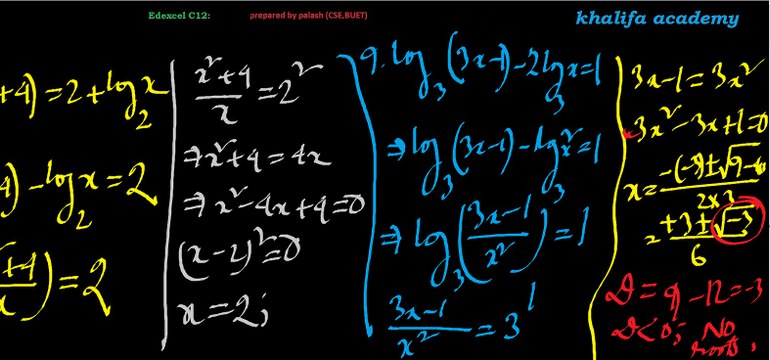 Edexcel C12:
prepared by palash (CSE,BUET)
khalifa academy
+4) = 2 + log₂ x
4) - log₂ x = 2
) = 2
(x²+4)/x = 2²
⇒ x²+4 = 4x
⇒ x² - 4x + 4 = 0
(x-2)² = 0
x = 2;
9. log₃ (3x-1) - 2 log₃ x = 1
⇒ log₃ (3x-1) - log₃ x² = 1
⇒ log₃ ((3x-1)/x²) = 1
(3x-1)/x² = 3¹
3x-1 = 3x²
3x² - 3x + 1 = 0
x = (-(-3) ± √9-
2×3
= (+3 ± √-3)/6
D = 9 - 12 = -3
D < 0; No
roots,